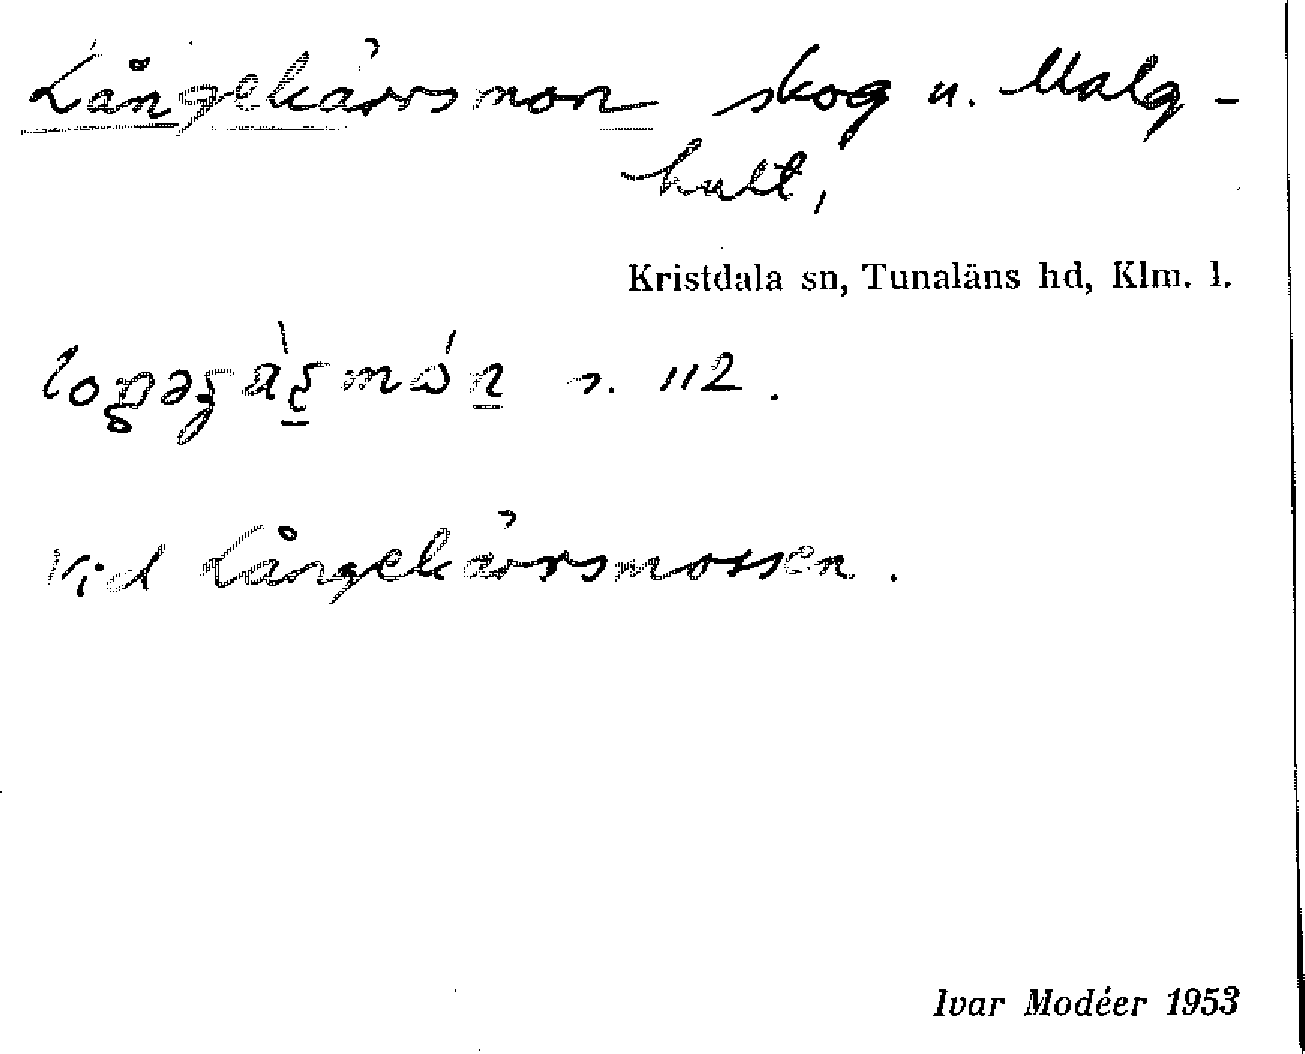 Långekärrsmon skog u. Malg-
hult,
Kristdala sn, Tunaläns hd, Klm. l.
s. 112.
Vid Långekärrsmossen.
Ivar Modéer 1953